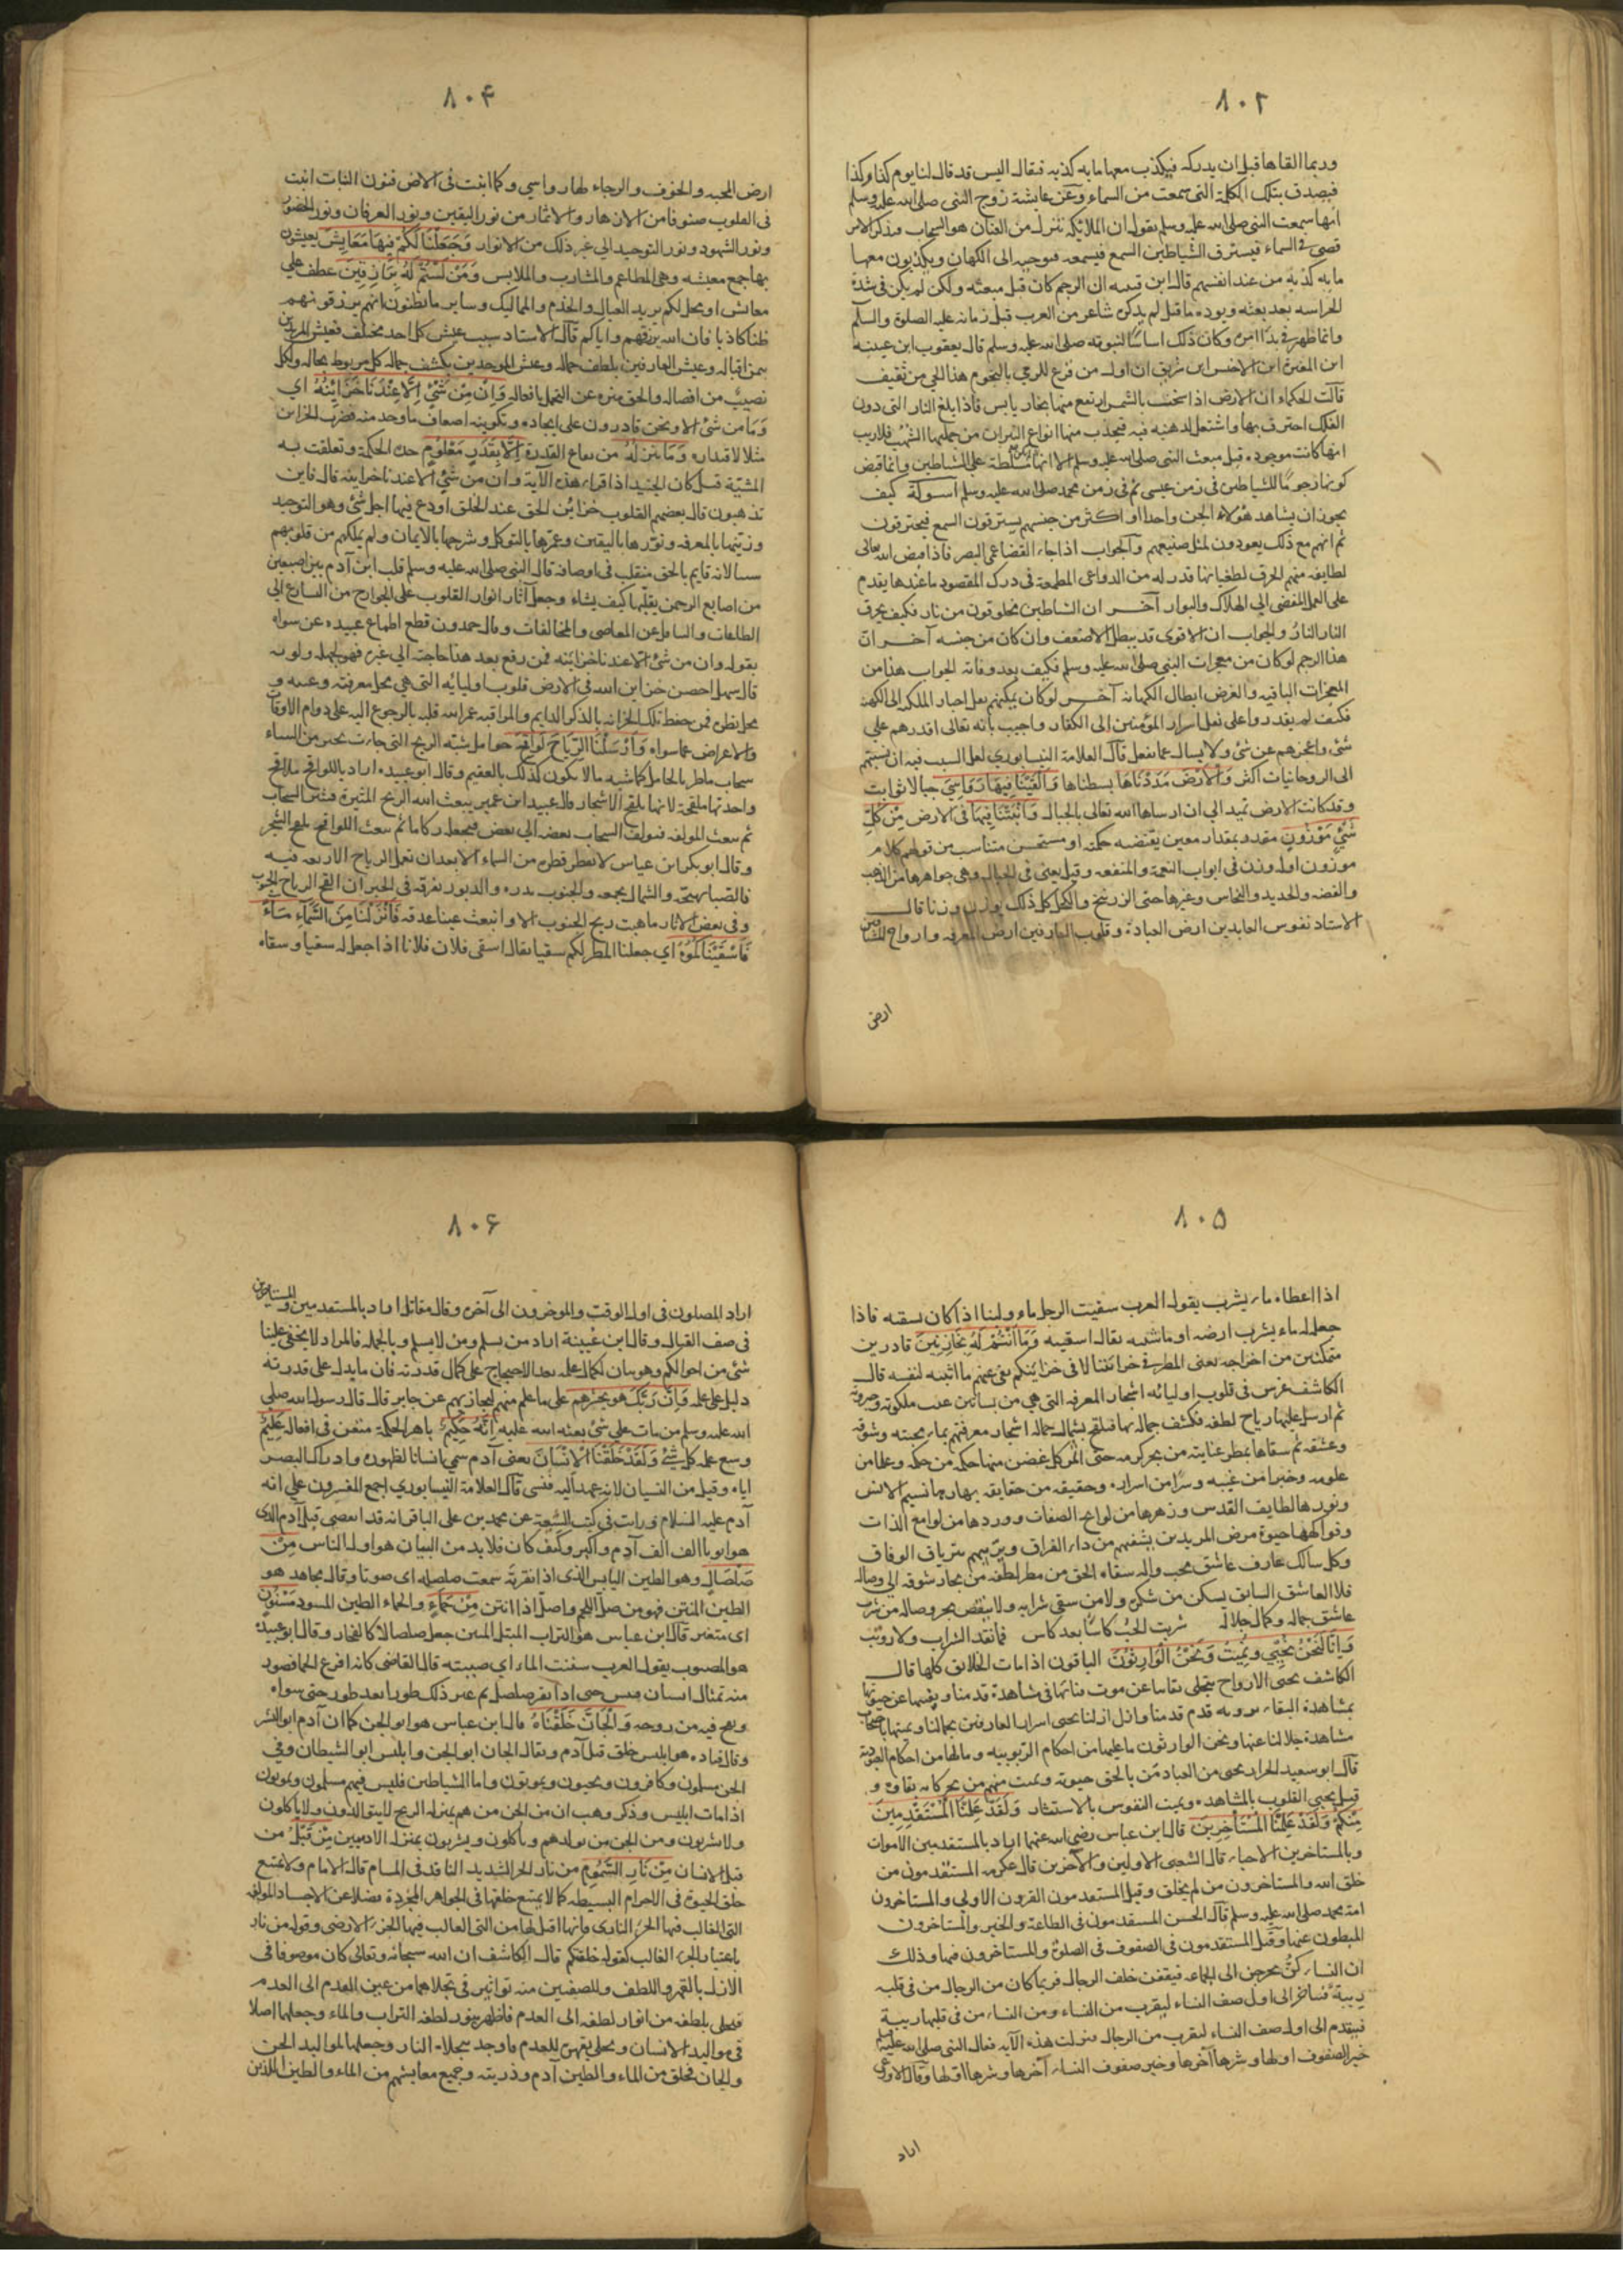 ٨٠٢
وربما القاها قبل ان يدركه فيكذب معها مايه كذبه فيقال اليس قد قال لنا يوم كذا وكذا
فيصدق بتلك الكلمة التى سمعت من السماء وعن عايشة زوج النبى صلى الله عليه وسلم
انها سمعت النبى صلى الله عليه وسلم يقول ان الملايكه تنزل من العنان هو السحاب فيذكر الامر
قضى فى السماء فيسترق الشياطين السمع فيسمعه فتوحيه الى الكهان ويكذبون معها
مايه كذبه من عند انفسهم قال ابن قتيبه ان الرجم كان قبل مبعثه ولكن لم يكن فى شدة
الحراسه بعد بعثه ويوده ما قيل لم يذكره شاعر من العرب قبل زمانه عليه الصلوة والسلم
وانما ظهر فى بدا امره وكان ذلك اساسا لنبوته صلى الله عليه وسلم قال يعقوب ابن عيينه
ابن المغيرة ابن الاخنس ابن شريق ان اول من فزع للرمى بالنجوم هذا الحى من ثقيف
قالت الحكماء ان الارض اذا سخنت بالشمس ارتفع منها بخار يابس فاذا بلغ النار التى دون
الفلك احترق بها واشتعل لدهنيه فيه فيحدث منها انواع النيران من جملتها الشهب فلاريب
انها كانت موجوده قبل مبعث النبى صلى الله عليه وسلم الا انها مسلطة على الشياطين وانما قيض
كونها رجوما للشياطين فى زمن عيسى ثم فى زمن محمد صلى الله عليه وسلم اسوله كيف
يجوز ان يشاهد هؤلاء الجن واحدا او اكثر من جنسهم يسترقون السمع فيحترقون
ثم انهم مع ذلك يعودون لمثل صنيعهم والجواب اذا جاء القضا عمى البصر فاذا قيض الله تعالى
لطايفه منهم الحرق لطغيانها قدر له من الدواعى المطمعة فى درك المقصود ما عندها يقدم
على العمل المفضى الى الهلاك والبوار آخر ان الشياطين مخلوقون من نار فكيف يحرق
النار النار والجواب ان الاقوى قد يبطل الاضعف وان كان من جنسه آخر ان
هذا الرجم لو كان من معجزات النبى صلى الله عليه وسلم فكيف بعد وفاته الجواب هذا من
المعجزات الباقيه والغرض ابطال الكهانه آخر لو كان يمكنهم نقل اخبار الملكه الى الكهنه
فكيف لم يقدروا على نقل اسرار المؤمنين الى الكفار واجيب بانه تعالى اقدرهم على
شئ واعجزهم عن شئ ولا يسال عما يفعل قال العلامة النيسابوري لعل السبب فيه ان نسبتهم
الى الروحانيات اكثر وَالْاَرْضَ مَدَدْنَاهَا بسطناها وَاَلْقَيْنَا فِيهَا رَوَاسِيَ جبالا ثوابت
وقد كانت الارض تميد الى ان ارساها الله تعالى بالجبال وَاَنْبَتْنَا فِيهَا فى الارض مِنْ كُلِّ
شَيْءٍ مَوْزُونٍ مقدر بمقدار معين يقتضيه حكمته او مستحسن متناسب من قولهم كلام
موزون اوله وزن فى ابواب النعمة والمنفعه وقيل يعنى فى الجبال وهى جواهرها من الذهب
والفضه والحديد والنحاس وغيرها حتى الزرنيخ والكحل كل ذلك يوزن وزنا قال
الاستاد نفوس العابدين ارض العبادة وقلوب العارفين ارض المعرفه وارواح المشتاقين
ارض
٨٠۴
ارض المحبه والخوف والرجاء لها رواسي وكما انبت فى الارض فنون النبات انبت
فى القلوب صنوفا من الانهار والاثمار من نور اليقين ونور العرفان ونور الحضور
ونور الشهود ونور التوحيد الى غير ذلك من الانوار وَجَعَلْنَا لَكُمْ فِيهَا مَعَايِشَ يعيشون
بها جمع معيشه وهى المطاعم والمشارب والملابس وَمَنْ لَسْتُمْ لَهُ بِرَازِقِينَ عطف على
معايش او محل لكم يريد العيال والخدم والمماليك وساير ما تظنون انهم يرزقونهم
ظنا كاذبا فان الله يرزقهم واياكم قال الاستاد سبب عيش كل احد مختلف فعيش المريدين
بيمن اقباله وعيش العارفين بلطف جماله وعيش الموحدين بكشف جماله كل مربوط بحاله ولكل
نصيب من افضاله والحق منزه عن التجمل بافعاله وَاِنْ مِنْ شَيْءٍ اِلَّا عِنْدَنَا خَزَائِنُهُ اى
وَمَا من شئ الا ونحن قادرون على ايجاده وتكوينه اضعاف ما وجد منه فضرب الخزاين
مثلا لاقتداره وَمَا نُنَزِّلُهُ من بقاع القدرة اِلَّا بِقَدَرٍ مَعْلُومٍ حده الحكمة وتعلقت به
المشية قيل كان الجنيد اذا قراء هذه الآية وان من شئ الا عندنا خزاينه قال فاين
تذهبون قال بعضهم القلوب خزاين الحق عند الخلق اودع فيها اجل شئ وهو التوحيد
وزينها بالمعرفه ونورها باليقين وعمرها بالتوكل وشرحها بالايمان ولم يملكهم من قلوبهم
شيئا لانه قايم بالحق متقلب فى اوصافه قال النبى صلى الله عليه وسلم قلب ابن آدم بين اصبعين
من اصابع الرحمن يقلبها كيف يشاء وجعل آثار انوار القلوب على الجوارح من التسارع الى
الطاعات والتثاقل عن المعاصى والمخالفات وقال حمدون قطع اطماع عبيده عن سواه
بقوله وان من شئ الا عندنا خزاينه فمن رفع بعد هذا حاجته الى غيره فهو لجهله ولومه
قال سهل احصن خزاين الله فى الارض قلوب اوليائه التى هى محل معرفته وعينه و
محل نظره فمن حفظ تلك الخزانه بالذكر الدايم والمراقبه عمر الله قلبه بالرجوع اليه على دوام الاوقات
والاعراض عما سواه وَاَرْسَلْنَا الرِّيَاحَ لَوَاقِحَ حوامل شبه الريح التى جاءت بخير من انشاء
سحاب ماطر بالحامل كما شبه ما لا يكون كذلك بالعقيم وقال ابو عبيده اراد باللواقح ملاقح
واحدتها ملقحة لانها تلقح الاشجار قال عبيد ابن عمير يبعث الله الريح المثيرة فتثير السحاب
ثم يبعث المولفه فتولف السحاب بعضه الى بعض فيجعله ركاما ثم يبعث اللواقح تلقح الشجر
وقال ابو بكر ابن عياس لا يقطر قطره من السماء الا بعد ان تعمل الرياح الاربعه فيه
فالصبا تهيجه والشمال تجمعه والجنوب تدره والدبور تفرقه فى الخبر ان القح الرياح الجنوب
وفى بعض الاثار ما هبت ريح الجنوب الا وانبعث عينا غدقه فَاَنْزَلْنَا مِنَ السَّمَآءِ مَآءً
فَاَسْقَيْنَاكُمُوهُ اي جعلنا المطر لكم سقيا يقال اسقى فلان فلانا اذا جعل له سقيا وسقاه
٨٠۵
اذا اعطاه ماء يشرب يقول العرب سقيت الرجل ماء ولبنا اذا كان يسقيه فاذا
جعل له ماء يشرب ارضه او ماشيه يقال اسقيه وَمَا اَنْتُمْ لَهُ بِخَازِنِينَ قادرين
متمكنين من اخراجه يعنى المطر فى خزائننا لا فى خزاينكم نفى عنهم ما اثبته لنفسه قال
الكاشف غرس فى قلوب اوليائه اشجار المعرفه التى هى من بساتين غيب ملكوته وجبروته
ثم ارسل عليها رياح لطفه فكشف جماله بها فتلقح بشمال جماله اشجار معرفتهم بماء محبته وشوقه
وعشقه ثم سقاها بمطر عنايته من بحر كرمه حتى اثمر كل غصن منها حكمه من حكمه وعلما من
علومه وخبرا من غيبه وسرا من اسراره وحقيقه من حقايقه بهارها نسيم الانس
ونورها لطايف القدس وزهرها من لوايح الصفات ووردها من لوامع الذات
وفواكهها حيوة مرض المريدين يشفيهم من داء الفراق ويربيهم بترياق الوفاق
وكل سالك عارف عاشق محب واله سقاه الحق من مطر لطفه من بحار شوقه الى وصاله
فلا العاشق السابق يسكن من شكره ولا من سقى شرابه ولا ينقص بحر وصاله من شرب
عاشق جماله وكمال جلاله شربت الحب كاسا بعد كاس فما نفد الشراب ولا رويت
وَاِنَّا لَنَحْنُ نُحْيِي وَنُمِيتُ وَنَحْنُ الْوَارِثُونَ الباقون اذا مات الخلائق كلها قال
الكاشف نحيى الارواح بتجلى بقائنا عن موت فنائها فى مشاهدة قدمنا ويفنيها عن حيوتها
بمشاهدة البقاء برويه قدم قدمنا وازل ازلنا نحيى اسرار العارفين بجمالنا ونميتها باصحاب
مشاهدة جلالنا عنها ونحن الوارثون ما عليها من احكام الربوبيه ومالها من احكام العبودية
قال ابو سعيد الخراز نحيى من العباد من بالحق حيوته ونميت منهم من بحركاته بقاوه و
قيل يحيى القلوب بالمشاهده ويميت النفوس بالاستتار وَلَقَدْ عَلِمْنَا الْمُسْتَقْدِمِينَ
مِنْكُمْ وَلَقَدْ عَلِمْنَا الْمُسْتَاْخِرِينَ قال ابن عباس رضى الله عنهما اراد بالمستقدمين الاموات
وبالمستاخرين الاحياء قال الشعبى الاولين والآخرين قال عكرمه المستقدمون من
خلق الله والمستاخرون من لم يخلق وقيل المستقدمون القرون الاولى والمستاخرون
امة محمد صلى الله عليه وسلم قال الحسن المستقدمون فى الطاعة والخير والمستاخرون
المبطون عنها وقيل المستقدمون فى الصفوف فى الصلوة والمستاخرون فيها وذلك
ان النساء كن يخرجن الى الجماعه فيقفن خلف الرجال فربما كان من الرجال من فى قلبه
ريبة فيتاخر الى اول صف النساء ليقرب من النساء ومن النساء من فى قلبها ريبة
فيتقدم الى اول صف النساء ليقرب من الرجال فنزلت هذه الآية فقال النبى صلى الله عليه وسلم
خير الصفوف اولها وشرها آخرها وخير صفوف النساء آخرها وشرها اولها وقال الاوزاعى
اراد
٨٠۶
اراد المصلون فى اول الوقت والموخرون الى آخره وقال مقاتل اراد بالمستقدمين والمستاخرين
فى صف القتال وقال ابن عيينة اراد من يسلم ومن لا يسلم وبالجمله فالمراد لا يخفى علينا
شئ من احوالكم وهو بيان لكمال علمه بعد الاحتجاج على كمال قدرته فان ما يدل على قدرته
دليل على علمه وَاِنَّ رَبَّكَ هُوَ يَحْشُرُهُمْ على ما علم منهم ليجازيهم عن جابر قال قال رسول الله صلى
الله عليه وسلم من مات على شئ بعثه الله عليه اِنَّهُ حَكِيمٌ باهر الحكمة متقن فى افعاله عَلِيمٌ
وسع علمه كل شئ وَلَقَدْ خَلَقْنَا الْاِنْسَانَ يعنى آدم سمى انسانا لظهوره وادراك البصر
اياه وقيل من النسيان لانه عهد اليه فنسى قال العلامة النيسابوري اجمع المفسرون على انه
آدم عليه السلام ورات فى كتب الشيعة عن محمد بن على الباقر انه قد انقضى قبل آدم الذى
هو ابونا الف الف آدم واكثر وكيف كان فلا بد من البيان هو اول الناس مِنْ
صَلْصَالٍ وهو الطين اليابس الذى اذا نقرته سمعت صلصله اى صوتا وقال مجاهد هو
الطين المنتن فهو من صل اللحم واصل اذا انتن مِنْ حَمَاءٍ والحماء الطين المسود مَسْنُونٍ
اى متغير قال ابن عباس هو التراب المبتل المنتن جعل صلصالا كالفخار وقال ابو عبيدة
هو المصبوب يقول العرب سننت الماء اي صببته قال القاضى كانه افرغ الحما فصور
منه تمثال انسان فيبس حتى اذا نقر صلصل ثم غير ذلك طورا بعد طور حتى سواه
ونفخ فيه من روحه وَالْجَانَّ خَلَقْنَاهُ قال ابن عباس هو ابو الجن كما ان آدم ابو البشر
وقال قتاده هو ابليس خلق قبل آدم ويقال الجان ابو الجن وابليس ابو الشيطان وفى
الجن مسلمون وكافرون ويحيون ويموتون واما الشياطين فليس فيهم مسلمون ويموتون
اذا مات ابليس وذكر وهب ان من الجن من هم بمنزلة الريح لا يتوالدون ولا ياكلون
ولا يشربون ومن الجن من يتوالدهم وياكلون ويشربون بمنزله الادميين مِنْ قَبْلُ من
قبل الانسان مِنْ نَارِ السَّمُومِ من نار الحر الشديد النافذ فى المسام قال الامام ولا يمتنع
خلق الحيوة فى الاجرام البسيطه كما لا يمتنع خلقها فى الجواهر المجردة فضلا عن الاجساد المولفه
التى الغالب فيها الجزء النارى فانها اقبل لها من التى الغالب فيها الجزء الارضى وقوله من نار
باعتبار الجزء الغالب كقوله خلقكم قال الكاشف ان الله سبحانه وتعالى كان موصوفا فى
الازل بالقهر واللطف وللصفتين منه تواثير فى تجلاهما من عين القدم الى العدم
فتجلى بلطفه من انوار لطفه الى العدم فاظهر بنور لطفه التراب والماء وجعلها اصلا
فى مواليد الانسان وتجلى بقهره للعدم فاوجد بتجلاه النار وجعلها لمواليد الجن
والجان فخلق من الماء والطين آدم وذريته وجميع معايشهم من الماء والطين اللذين